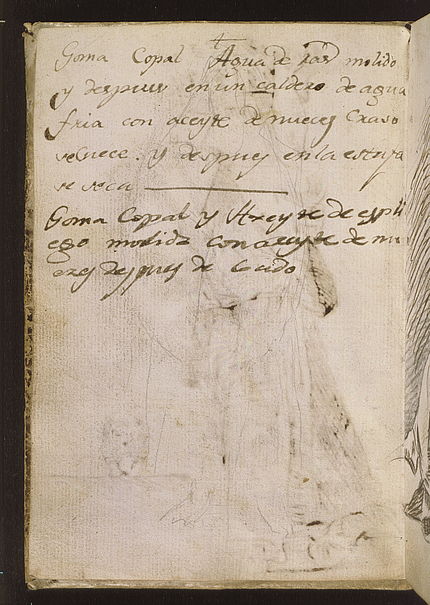 Goma Copal Agua de ras molido
y despues en un caldero de agua
fria con aceyte de nueces Craso
se cuece. y despues en la estufa
se seca
Goma Copal y Aze yte de espli
ego molida con aceyte de nu
ezes despues de